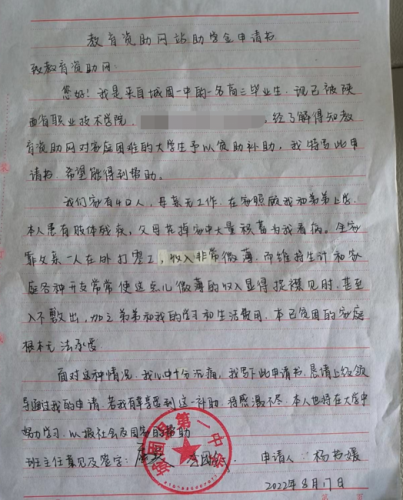 教育资助网站助学金申请书
致教育资助网:
您好!我是来自城固一中的一名高三毕业生,现已被陕
西省职业技术学院,经了解得知教
育资助网对家庭困难的大学生予以资助补助,我特写此申
请书 希望能得到帮助。
我们家有4口人,母亲无工作,在家照顾我和弟弟上学。
本人患有肢体残疾,父母花掉家中大量积蓄为我看病。全家
靠父亲一人在外打零工,收入非常微薄,而维持生计和家
庭各种开支常常使这点儿微薄的收入显得捉襟见肘,甚至
入不敷出,加之弟弟和我的学习和生活费用,本已贫困的家庭
根本无法承受
面对这种情况,我心中十分沉痛,我写下此申请书,恳请上级领
导通过我的申请 若我有幸受到这一补助,将感激不尽,本人也将在大学中
努力学习,以报社会及国家的帮助
班主任意见及签字: 申请人: 杨
2022年8月17日
第一中学